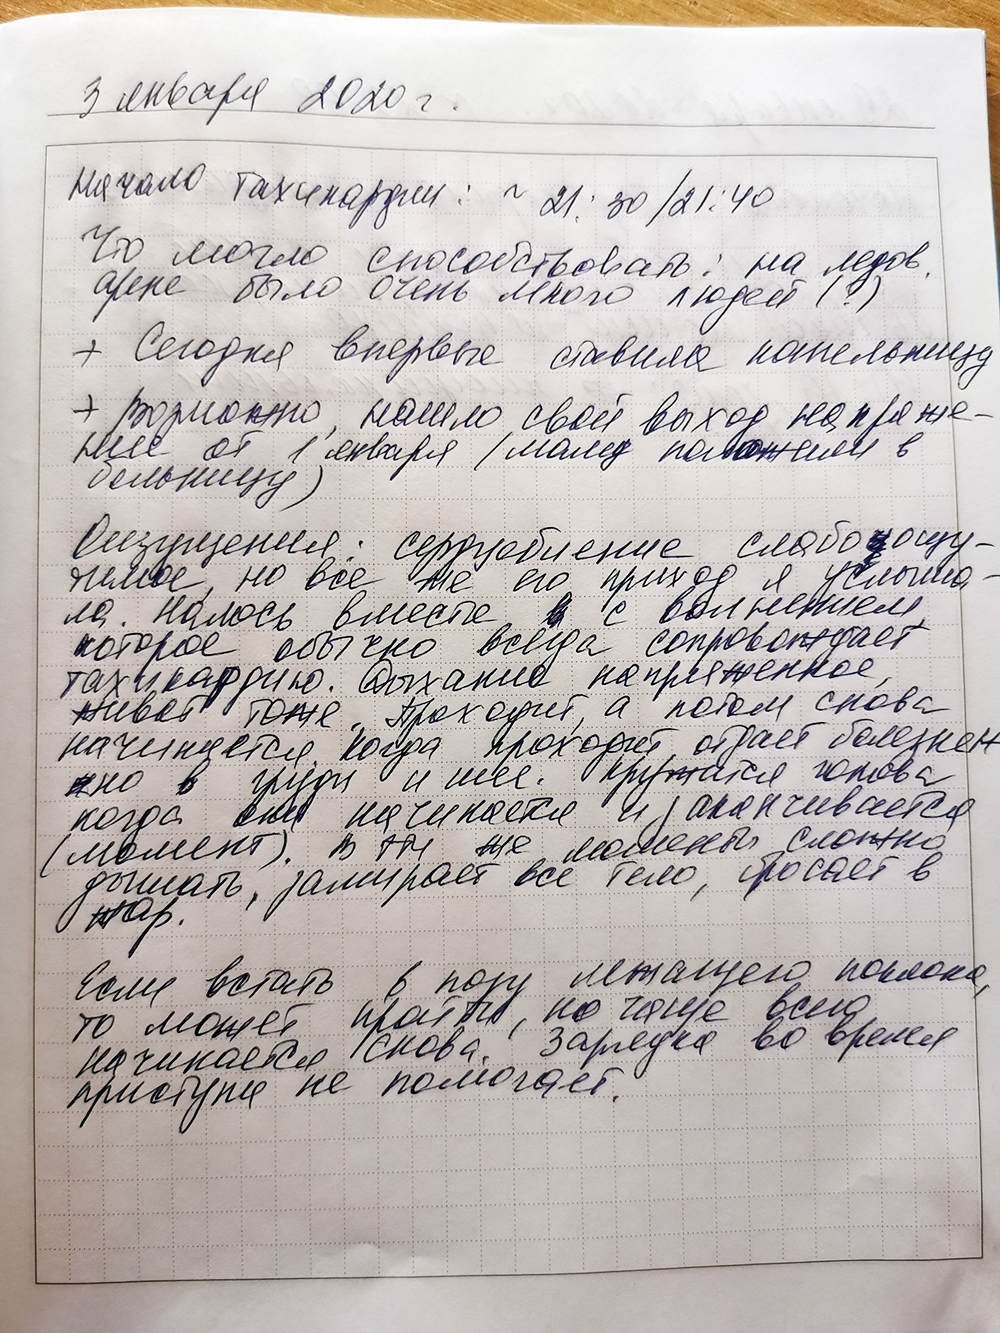 3 января 2020 г.
Начало тахикардии: ~ 21:30/21:40
Что могло способствовать: на ледов.
арене было очень много людей (?)
+ Сегодня впервые ставила капельницу
+ Возможно, нашло свой выход напряже-
ние от 1 января (маму положили в
больницу)
Ощущения: сердцебиение слабоощу-
тимое, но все же его приход я услыша-
ла. Началось вместе с волнением
которое обычно всегда сопровождает
тахикардию. Дыхание напряженное,
живот тоже. Проходит, а потом снова
начинается, когда проходит, отдает болезнен
но в груди и шее. Кружится голова
когда начинается и заканчивается
(момент). В эти же моменты сложно
дышать, замирает все тело, бросает в
жар.
Если встать в позу лежащего
то может пройти, но чаще всего
начинается снова. Зарядка во время
приступа не помогает.